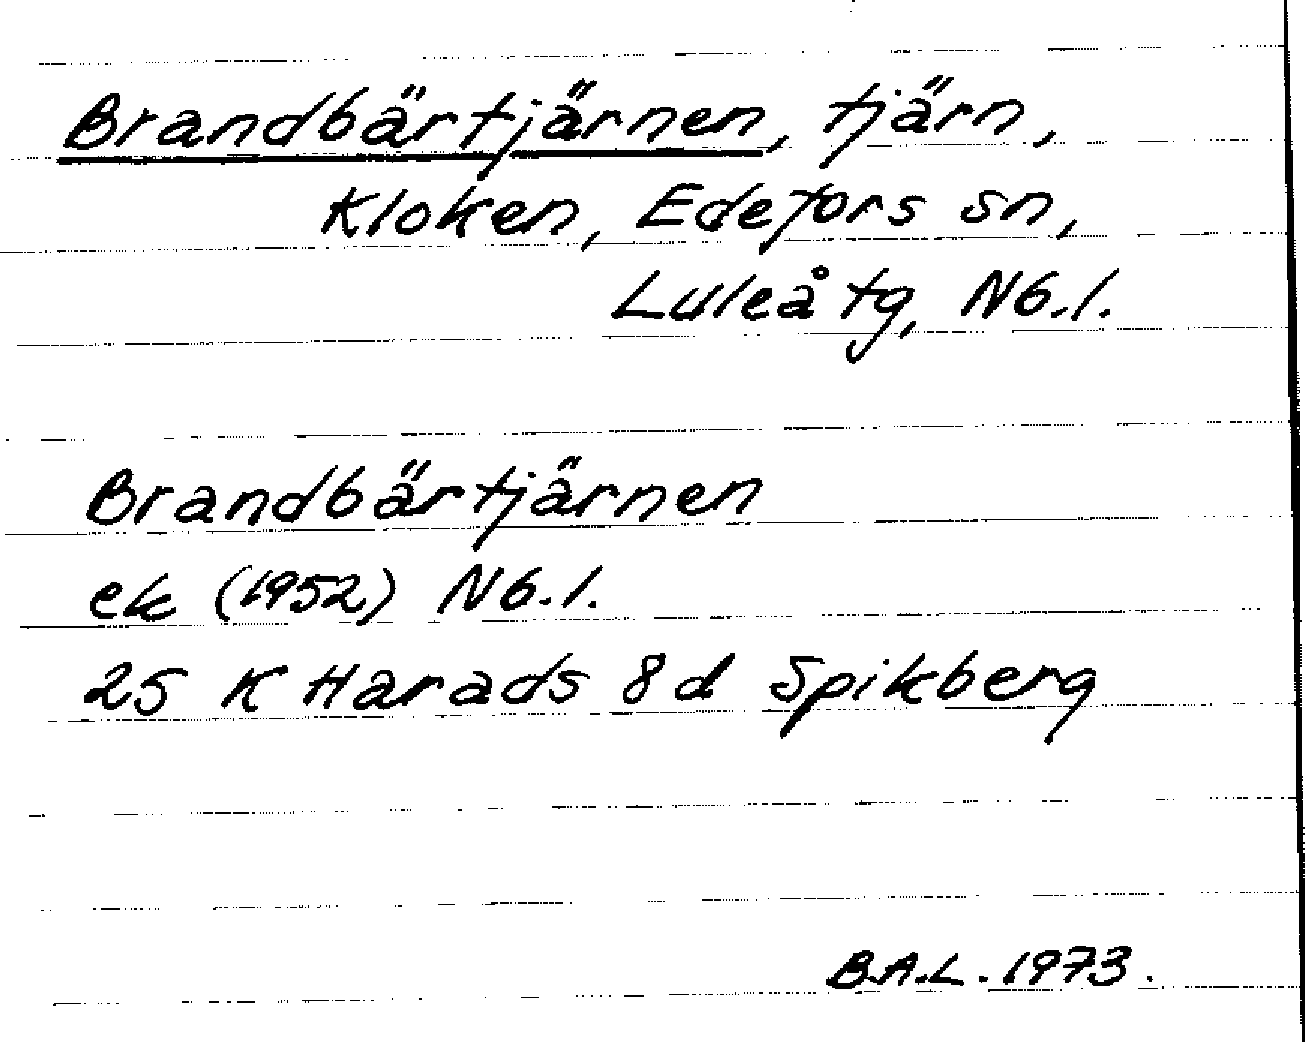 Brandbärtjärnen, tjärn,
Kloken, Edefors sn,
Luleå tg, Nb.l.
Brandbärtjärnen
ek (1952) Nb.l.
25 K Harads 8d Spikberg
B.A.L. 1973.